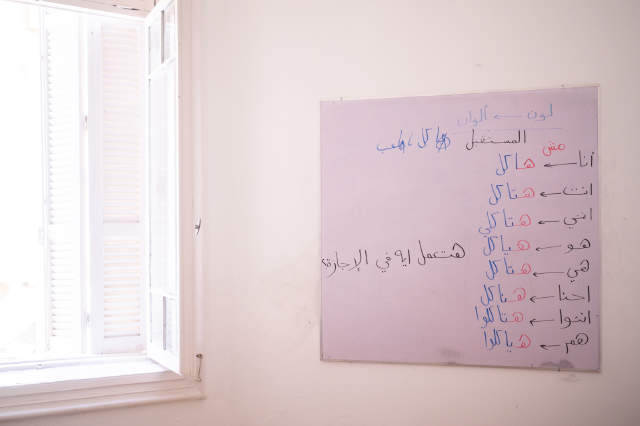 لون ← ألوان
المستقبل هاكل
مش
أنا ← هاكل
انت ← هتاكل
انتي ← هتاكلي
هو ← هياكل
هي ← هتاكل
احنا ← هناكل
انتوا ← هتاكلوا
هم ← هياكلوا
هتعمل ايه في الإجازة؟